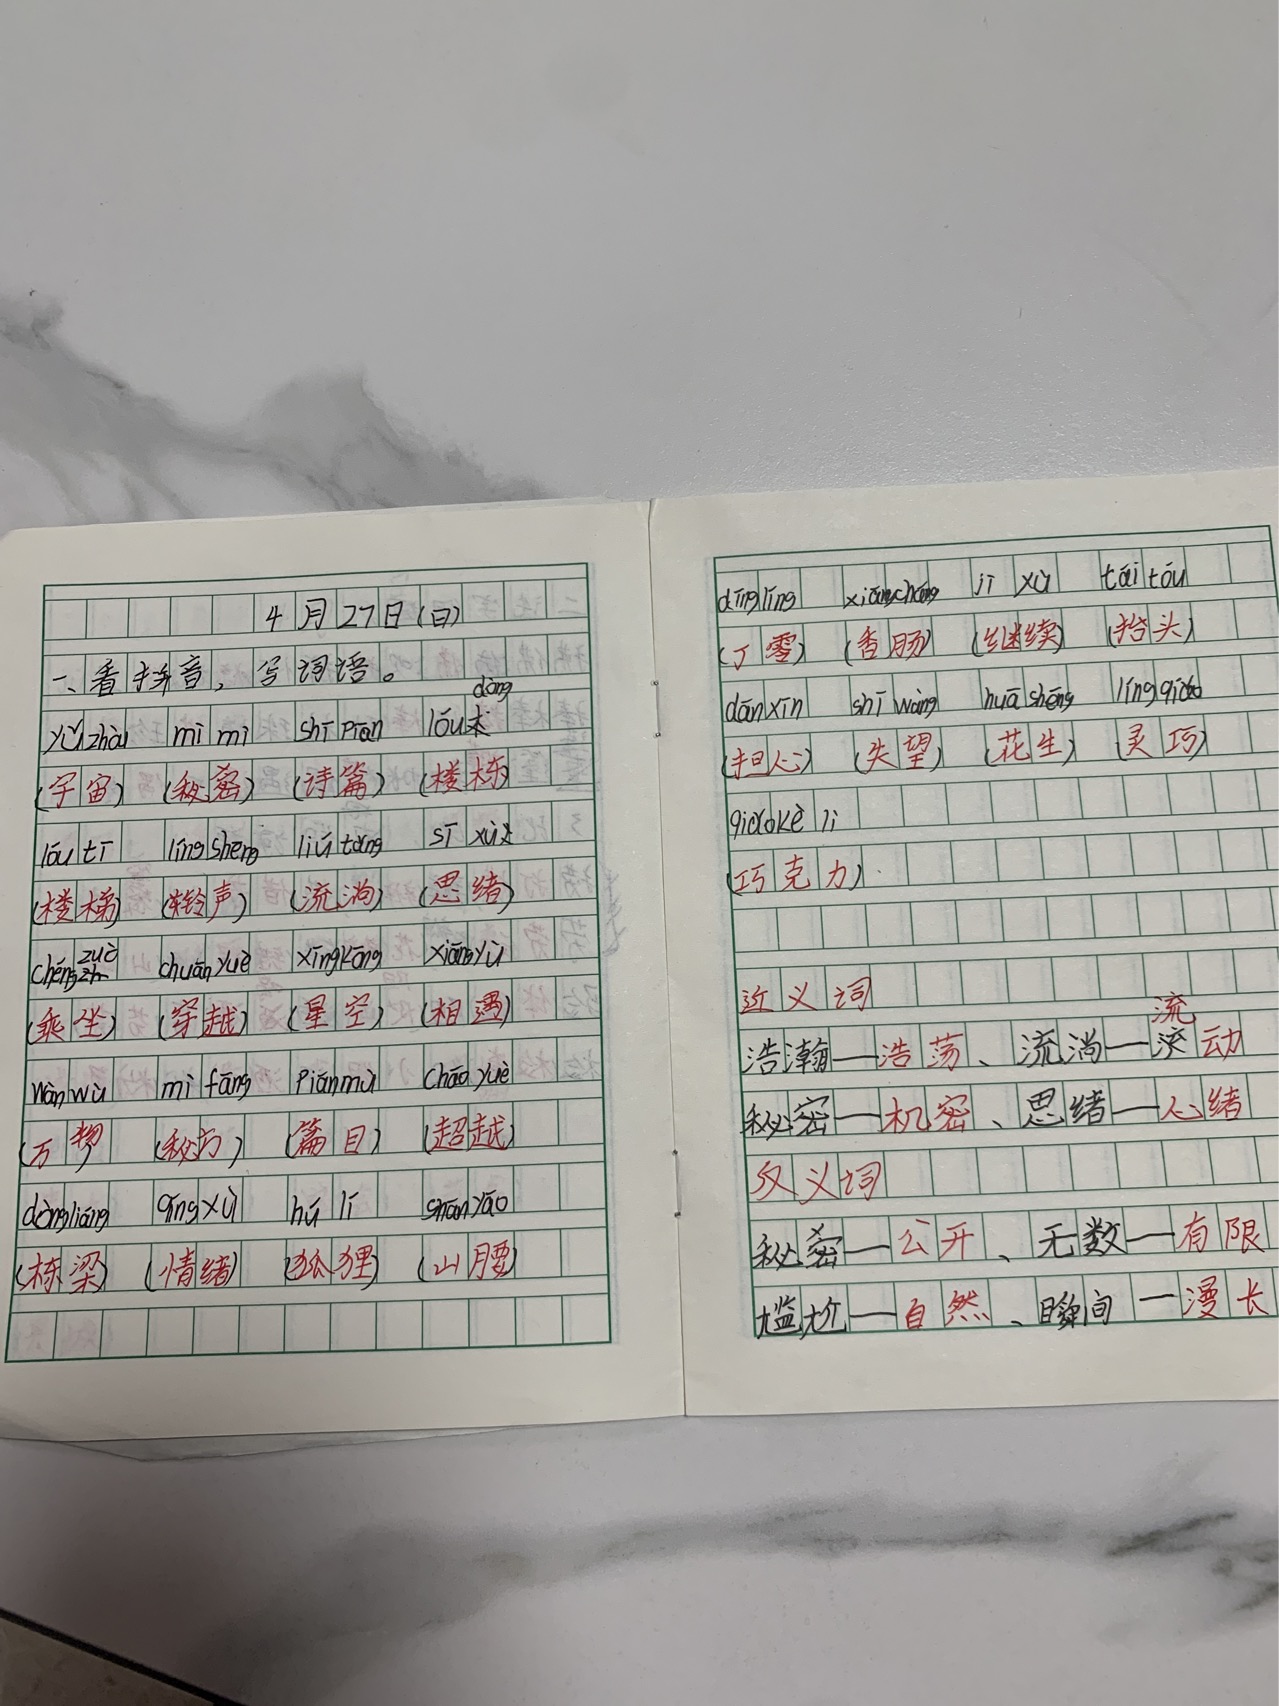 4月27日(日)
一、看拼音，写词语。
dòng
yǔ zhòu mì mì shī piān lóu
(宇宙) (秘密) (诗篇) (楼栋)
lóu tī líng shēng liú tǎng sī xù
(楼梯) (铃声) (流淌) (思绪)
chéng zuò chuān yuè xīng kōng xiāng yù
(乘坐) (穿越) (星空) (相遇)
wàn wù mì fāng piān mù chāo yuè
(万物 (秘方) (篇目) (超越)
dòng liáng qíng xù hú lí shān yāo
(栋梁) (情绪) (狐狸) (山腰)
dīng líng xiāng cháng jì xù tái tóu
(丁零) (香肠) (继续) (抬头)
dān xīn shī wàng huā shēng líng qiǎo
(担心) (失望) (花生) (灵巧)
qiǎo kè lì
(巧克力)
近义词
浩瀚—浩荡、流淌—流动
秘密—机密、思绪—心绪
反义词
秘密—公开、无数—有限
尴尬—自然、瞬间—漫长